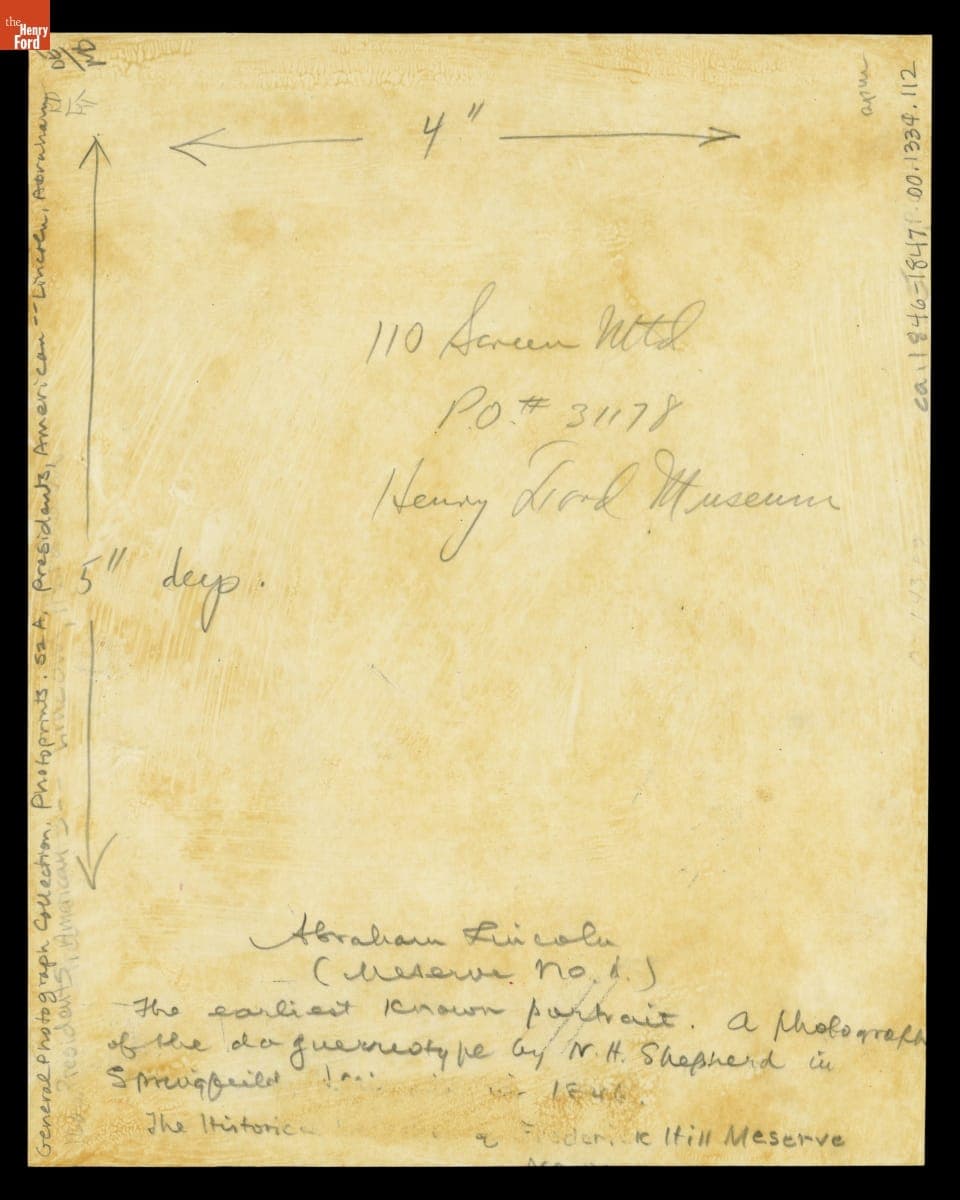 the
Henry
Ford
4"
110 Screen Mtd
P.O.# 31178
Henry Ford Museum
5" deep.
Abraham Lincoln
(Meserve No. 1.)
The earliest known portrait. A photograph
of the daguerreotype by N.H. Shepherd in
Springfeild in 1846.
The Historica Frederick Hill Meserve
General Photograph Collection, Photoprints. S2A, Presidents, American -- Lincoln, Abraham
Presidents, American -- Lincoln
ca. 1846-1847 00.1334.112